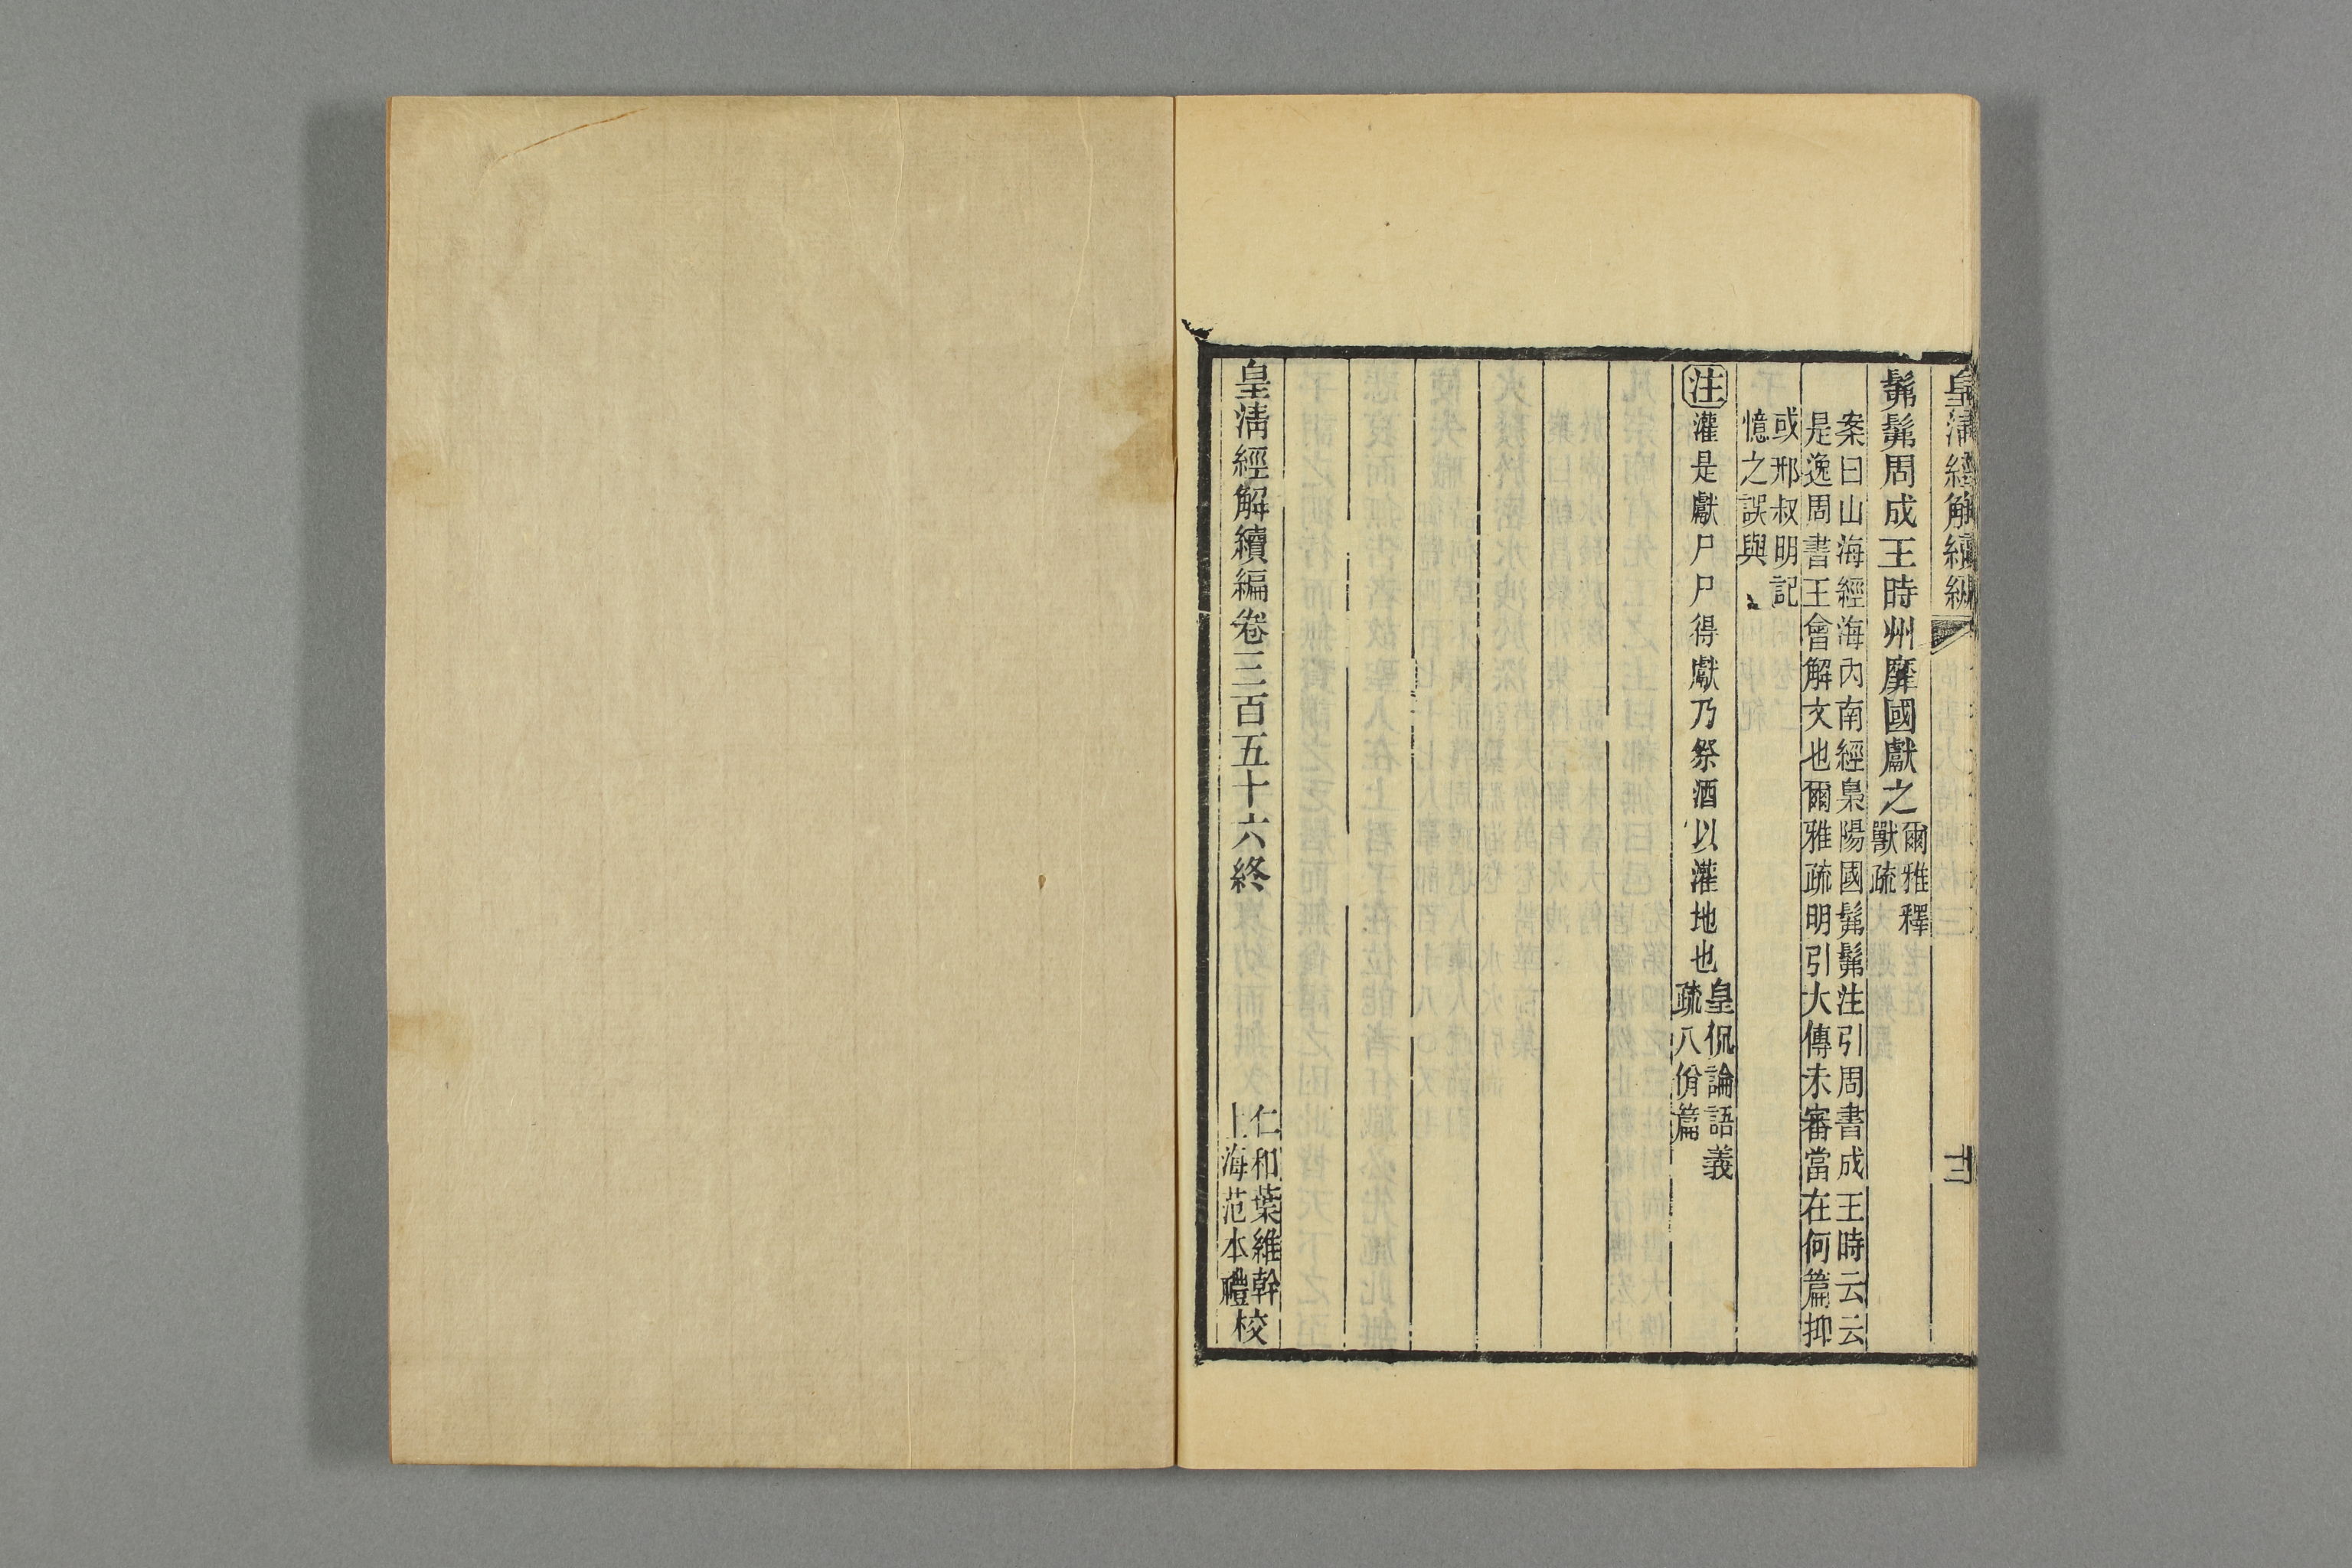 皇清經解續編
髴髴周成王時州靡國獻之爾雅釋
獸疏
案曰山海經海內南經梟陽國髴髴注引周書成王時云云
是逸周書王會解文也爾雅疏明引大傳未審當在何篇抑
或邢叔明記
憶之誤與
注灌是獻尸尸得獻乃祭酒以灌地也皇侃論語義
疏八佾篇
皇清經解續編卷三百五十六終
仁和葉維幹
上海范本禮校